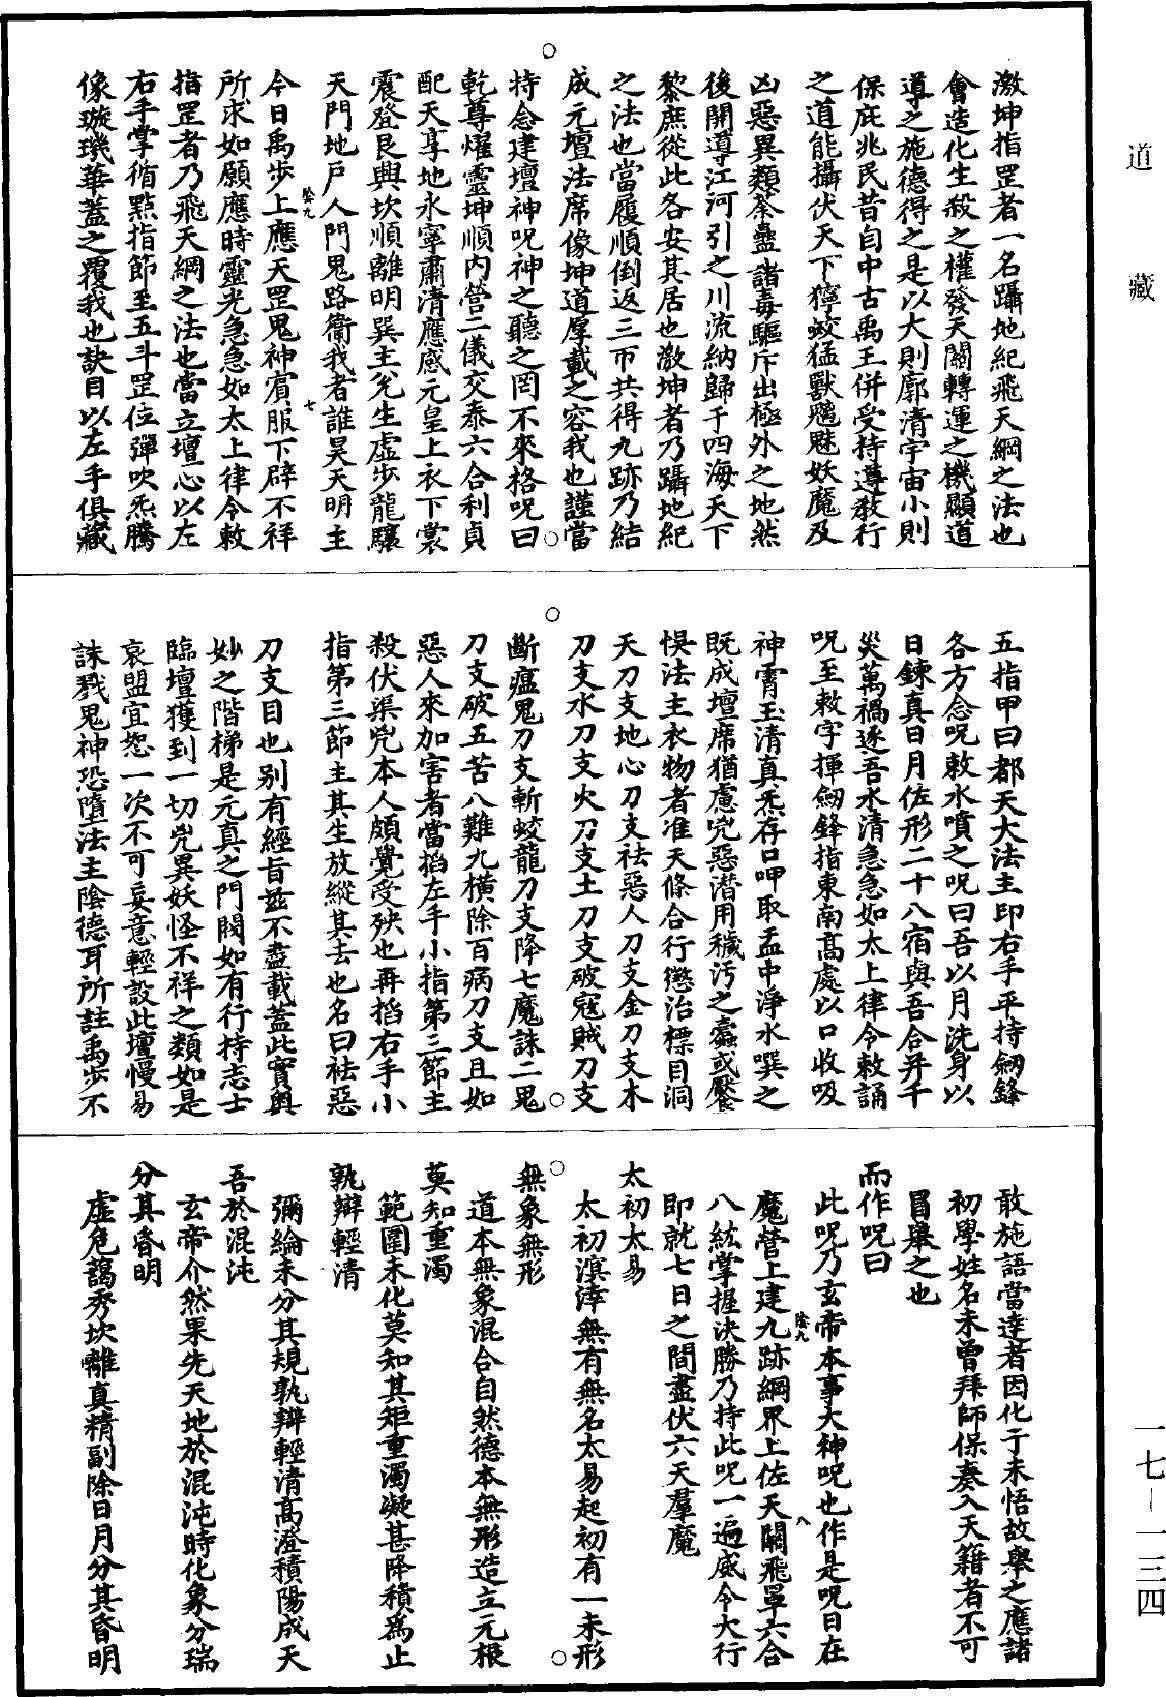 道藏
一七—一三四
激坤指罡者一名躡地紀飛天綱之法也
會造化生殺之權發天關轉運之機顯道
導之施德得之是以大則廓清宇宙小則
保庇兆民昔自中古禹王併受持遵教行
之道能攝伏天下獰蛟猛獸魑魅妖魔及
凶惡異類荼蠱諸毒驅斥出極外之地然
後開導江河引之川流納歸于四海天下
黎庶從此各安其居也激坤者乃躡地紀
之法也當履順倒返三帀共得九跡乃結
成元壇法席像坤道厚載之容我也謹當
持念建壇神呪神之聽之罔不來格呪曰
乾尊燿靈坤順內營二儀交泰六合利貞
配天享地永寧肅清應感元皇上衣下裳
震登艮興坎順離明巽主兊生虛步龍驤
天門地戶人門鬼路衞我者誰昊天明主
今日禹步上應天罡鬼神賔服下辟不祥
所求如願應時靈光急急如太上律令敕
指罡者乃飛天綱之法也當立壇心以左
右手掌循點指節至五斗罡位彈吹炁騰
像璇璣華蓋之覆我也訣目以左手俱藏
陰九
七
五指甲曰都天大法主印右手平持劒鋒
各方念呪敕水噴之呪曰吾以月洗身以
日鍊真日月佐形二十八宿與吾合并千
災萬禍逐吾水清急急如太上律令敕誦
呪至敕字揮劒鋒指東南高處以口收吸
神霄玉清真炁存口呷取盂中淨水噀之
既成壇席猶慮兇惡潜用穢污之蠱或饜
悮法主衣物者准天條合行懲治標目洞
天刀支地心刀支祛惡人刀支金刀支木
刀支水刀支火刀支土刀支破寇賊刀支
斷瘟鬼刀支斬蛟龍刀支降七魔誅二鬼
刀支破五苦八難九橫除百病刀支且如
惡人來加害者當搯左手小指第三節主
殺伏渠兇本人頗覺受殃也再搯右手小
指第三節主其生放縱其去也名曰祛惡
刀支目也别有經旨兹不盡載蓋此實奧
妙之階梯是元真之門閥如有行持志士
臨壇獲到一切兇異妖怪不祥之類如是
哀盟宜恕一次不可妄意輕設此壇慢易
誅戮鬼神恐墮法主陰德耳所註禹步不
敢施語當達者因化于未悟故舉之應諸
初學姓名未曾拜師保奏入天籍者不可
冒舉之也
而作呪曰
此呪乃玄帝本事大神呪也作是呪日在
魔營上建九跡綱界上佐天關飛罩六合
八紘掌握決勝乃持此呪一遍威令大行
即就七日之間盡伏六天羣魔
太初太易
太初溟涬無有無名太易起初有一未形
無象無形
道本無象混合自然德本無形造立元根
莫知重濁
範圍未化莫知其矩重濁凝甚降積爲止
孰辯輕清
彌綸未分其規孰辯輕清高澄積陽成天
吾於混沌
玄帝介然果先天地於混沌時化象分瑞
分其昏明
虛危藹秀坎離真精副除日月分其昏明
陰九
八